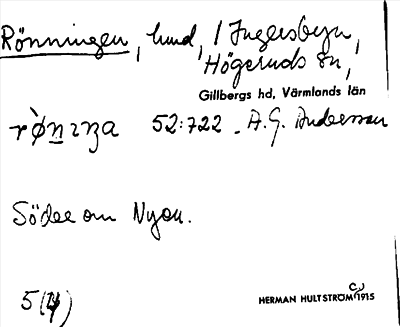 Rönningen, lund, / Ingersbyn,
Högeruds sn,
Gillbergs hd, Värmlands län
52:722 A.G. Andersson
Söder om Nyon.
HERMAN HULTSTRÖM 1915